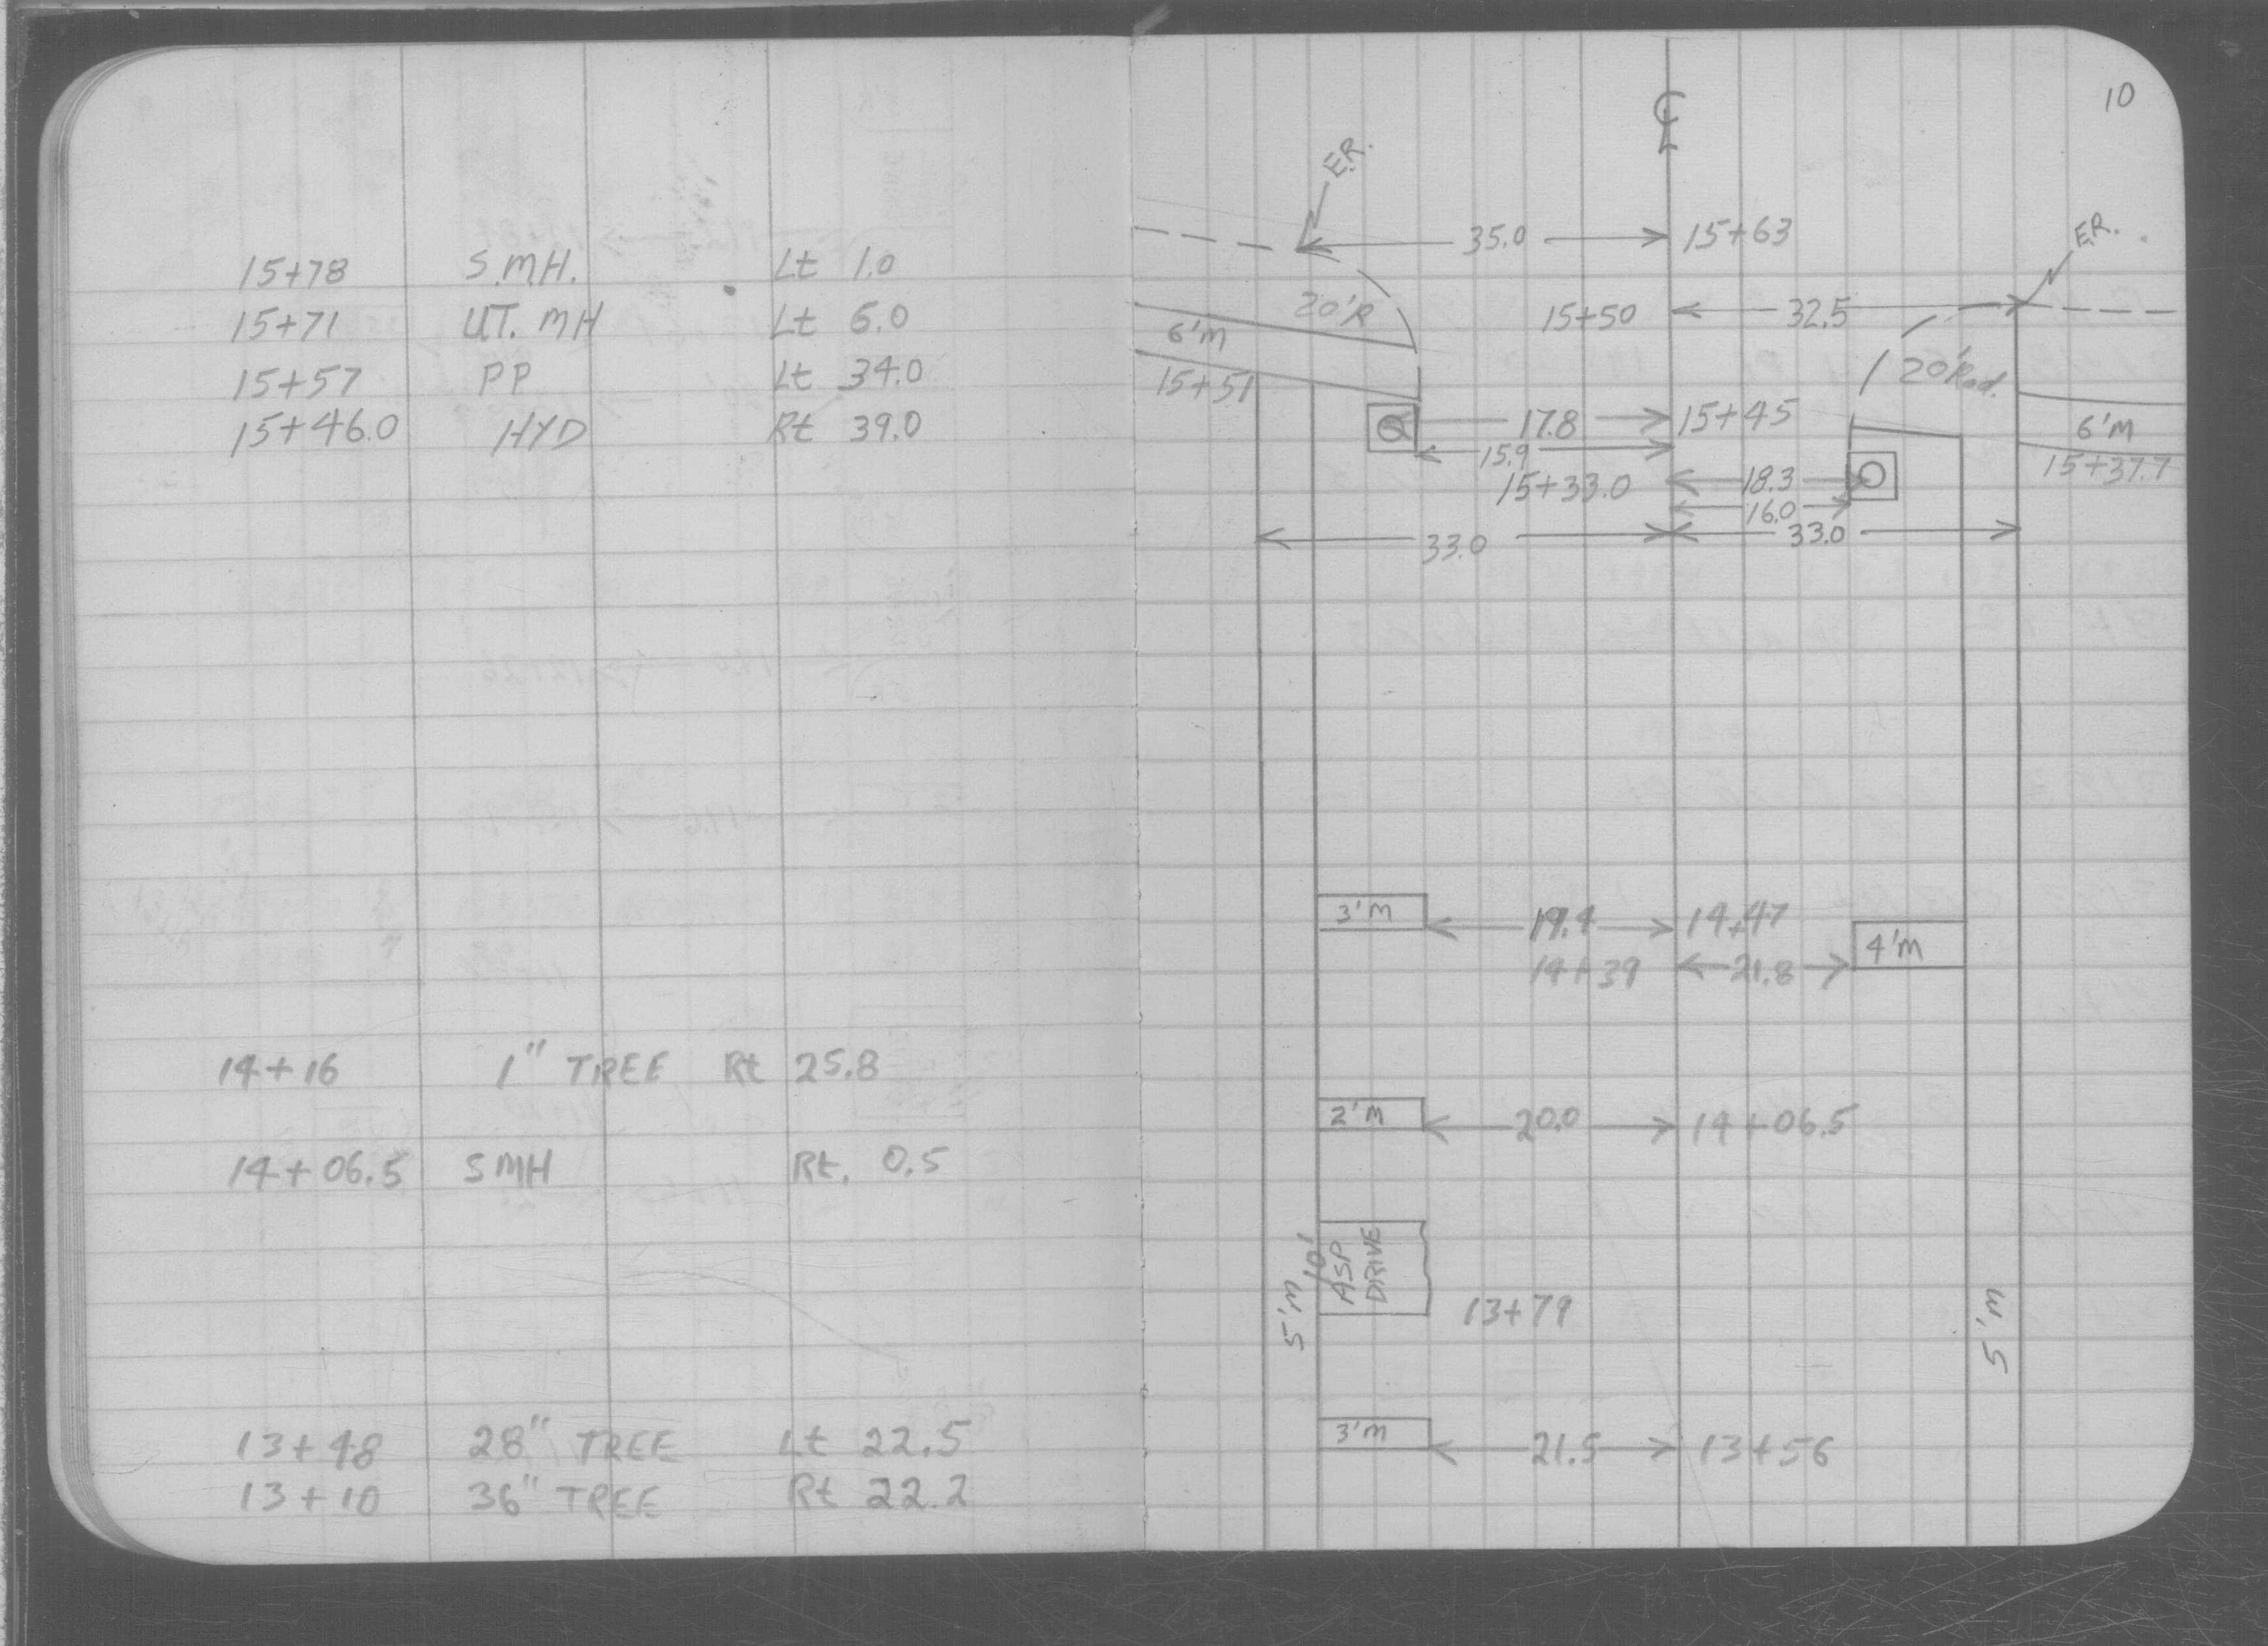 15+78 S.M.H. Lt 1.0
15+71 UT. MH Lt 6.0
15+57 PP Lt 34.0
15+46.0 HYD Rt 39.0
14+16 1" TREE Rt 25.8
14+06.5 SMH Rt. 0.5
13+48 28" TREE Lt 22.5
13+10 36" TREE Rt 22.2
10
℄
E.R.
35.0 15+63
E.R.
20'R 15+50 32.5
6'M
15+51 20'Rad.
17.8 15+45 6'M
15.9
15+33.0 18.3 15+37.7
16.0
33.0 33.0
3'M 19.4 14+47
14+39 21.8 4'M
2'M 20.0 14+06.5
5'M 10' ASP DRIVE
13+79
5'M
3'M 21.5 13+56